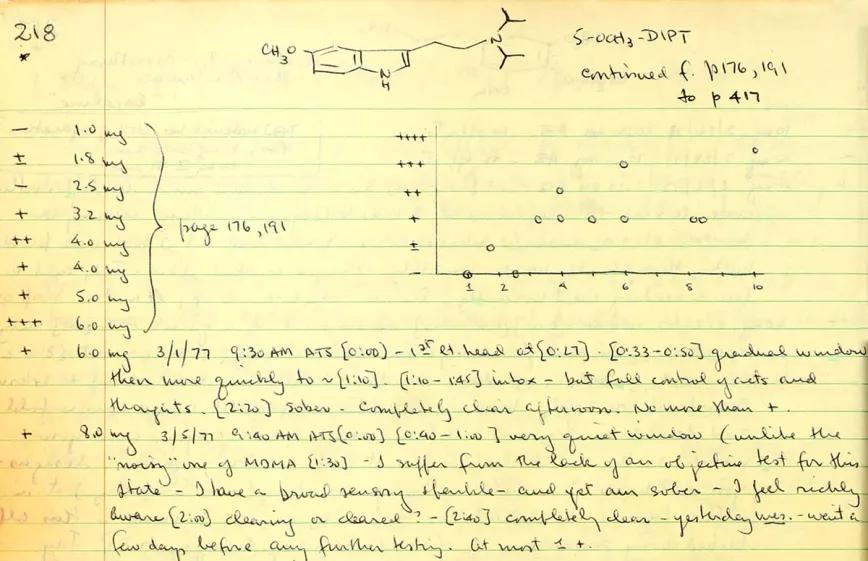 218
*
CH3O
N
N
H
5-OCH3-DIPT
continued f. p176, 191
to p 417
— 1.0 mg
± 1.8 mg
— 2.5 mg
+ 3.2 mg
++ 4.0 mg
+ 4.0 mg
+ 5.0 mg
+++ 6.0 mg
page 176, 191
++++
+++
++
+
±
—
1 2 4 6 8 10
+ 6.0 mg 3/1/77 9:30 AM ATS [0:00] - 1st lt. head at [0:27]. [0:33-0:50] gradual window
then more quickly to ~[1:10]. [1:10-1:45] intox - but full control of acts and
thoughts. [2:20] sober - completely clear afternoon. No more than +.
+ 8.0 mg 3/5/77 9:40 AM ATS [0:00] [0:40-1:00] very quiet window (unlike the
"noisy" one of MDMA [1:30] - I suffer from the lack of an objective test for this
state - I have a broad sensory sparkle - and yet am sober - I feel richly
aware [2:00] clearing or cleared? - [2:40] completely clear - yesterday was. - wait a
few days before any further testing. At most 1 +.